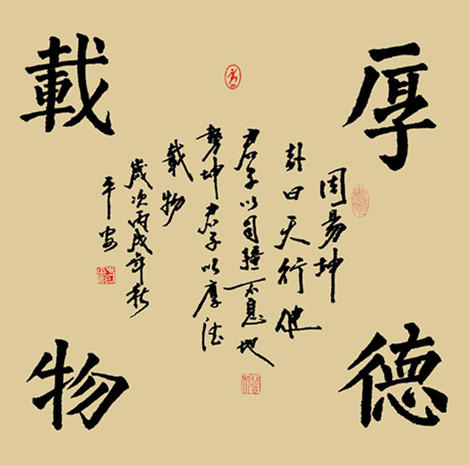 厚德
載物
周易坤
卦曰天行健
君子以自强不息地
勢坤君子以厚德
載物
歲次丙戌年秋
平安